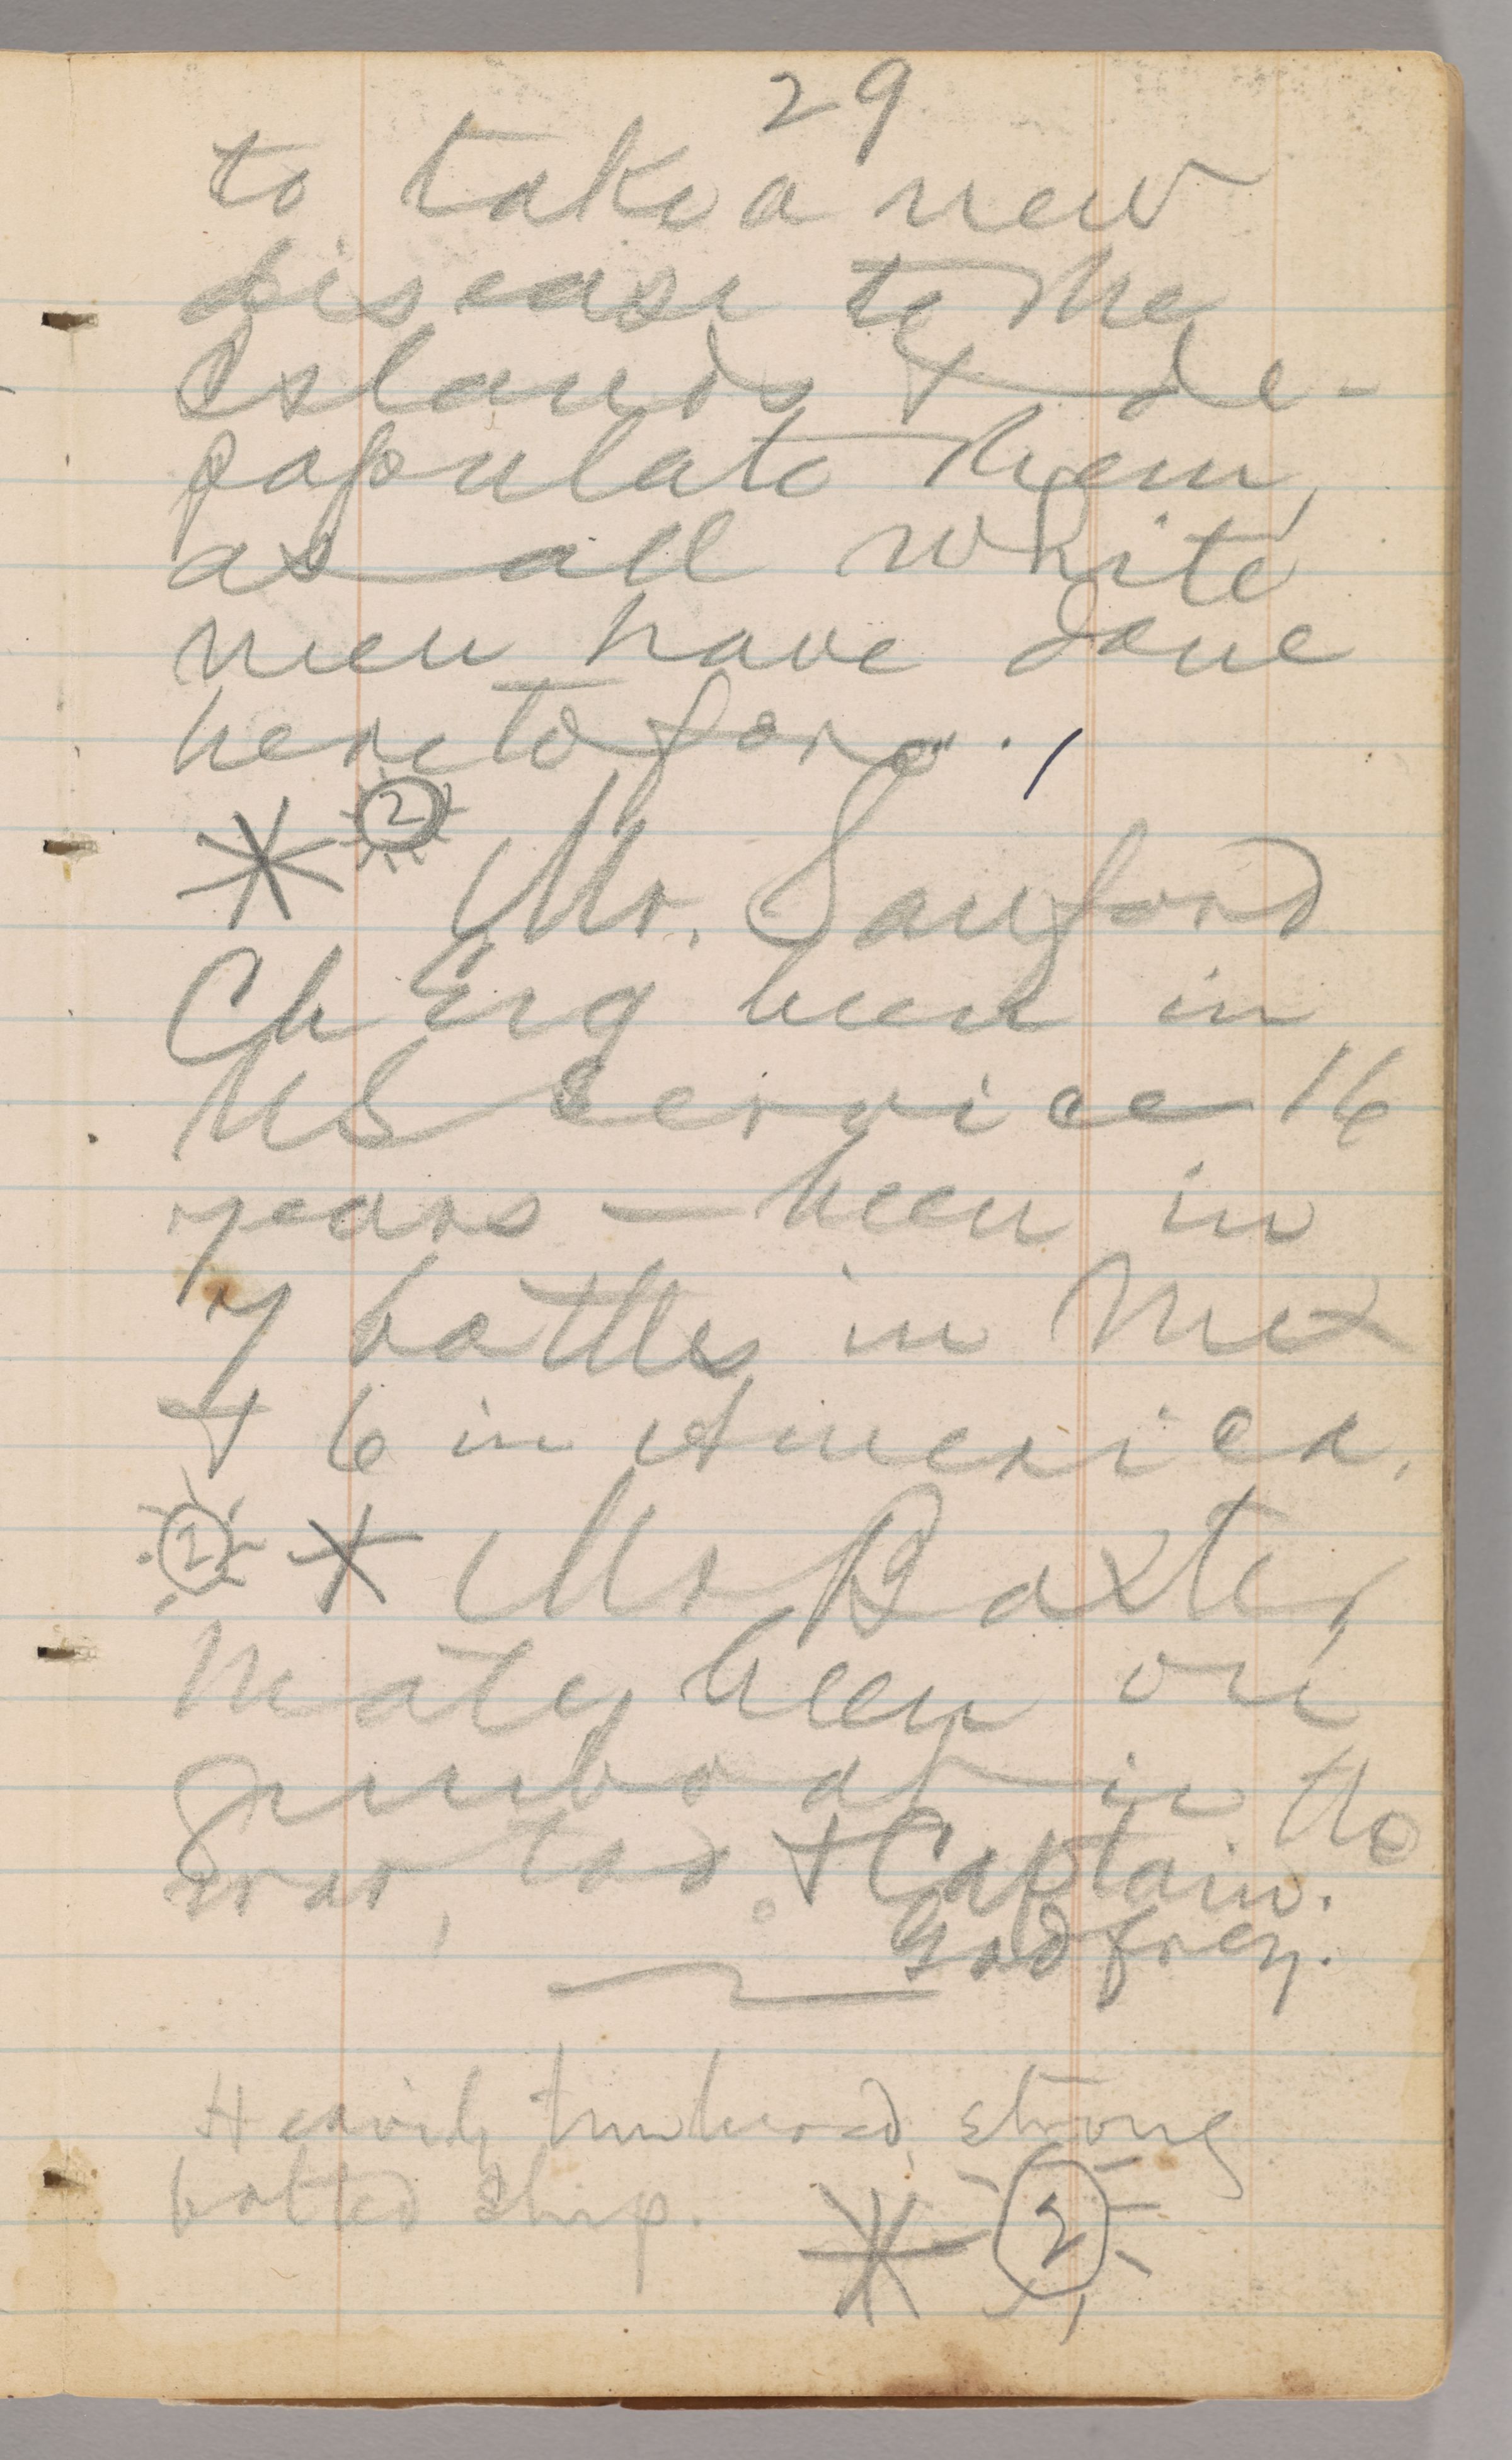 29
to take a new
disease to the
Islands & de-
populate them,
as all white
men have done
heretofore.
* 2 Mr. Sanford
Ch Eng been in
US Service 16
years — been in
7 battles in Mex
& 6 in America.
2 * Mr Baxter
Mate, been on
gunboat in the
war, too. & Captain.
Godfrey.
Heavily timbered, strong
bolted ship.
* 2